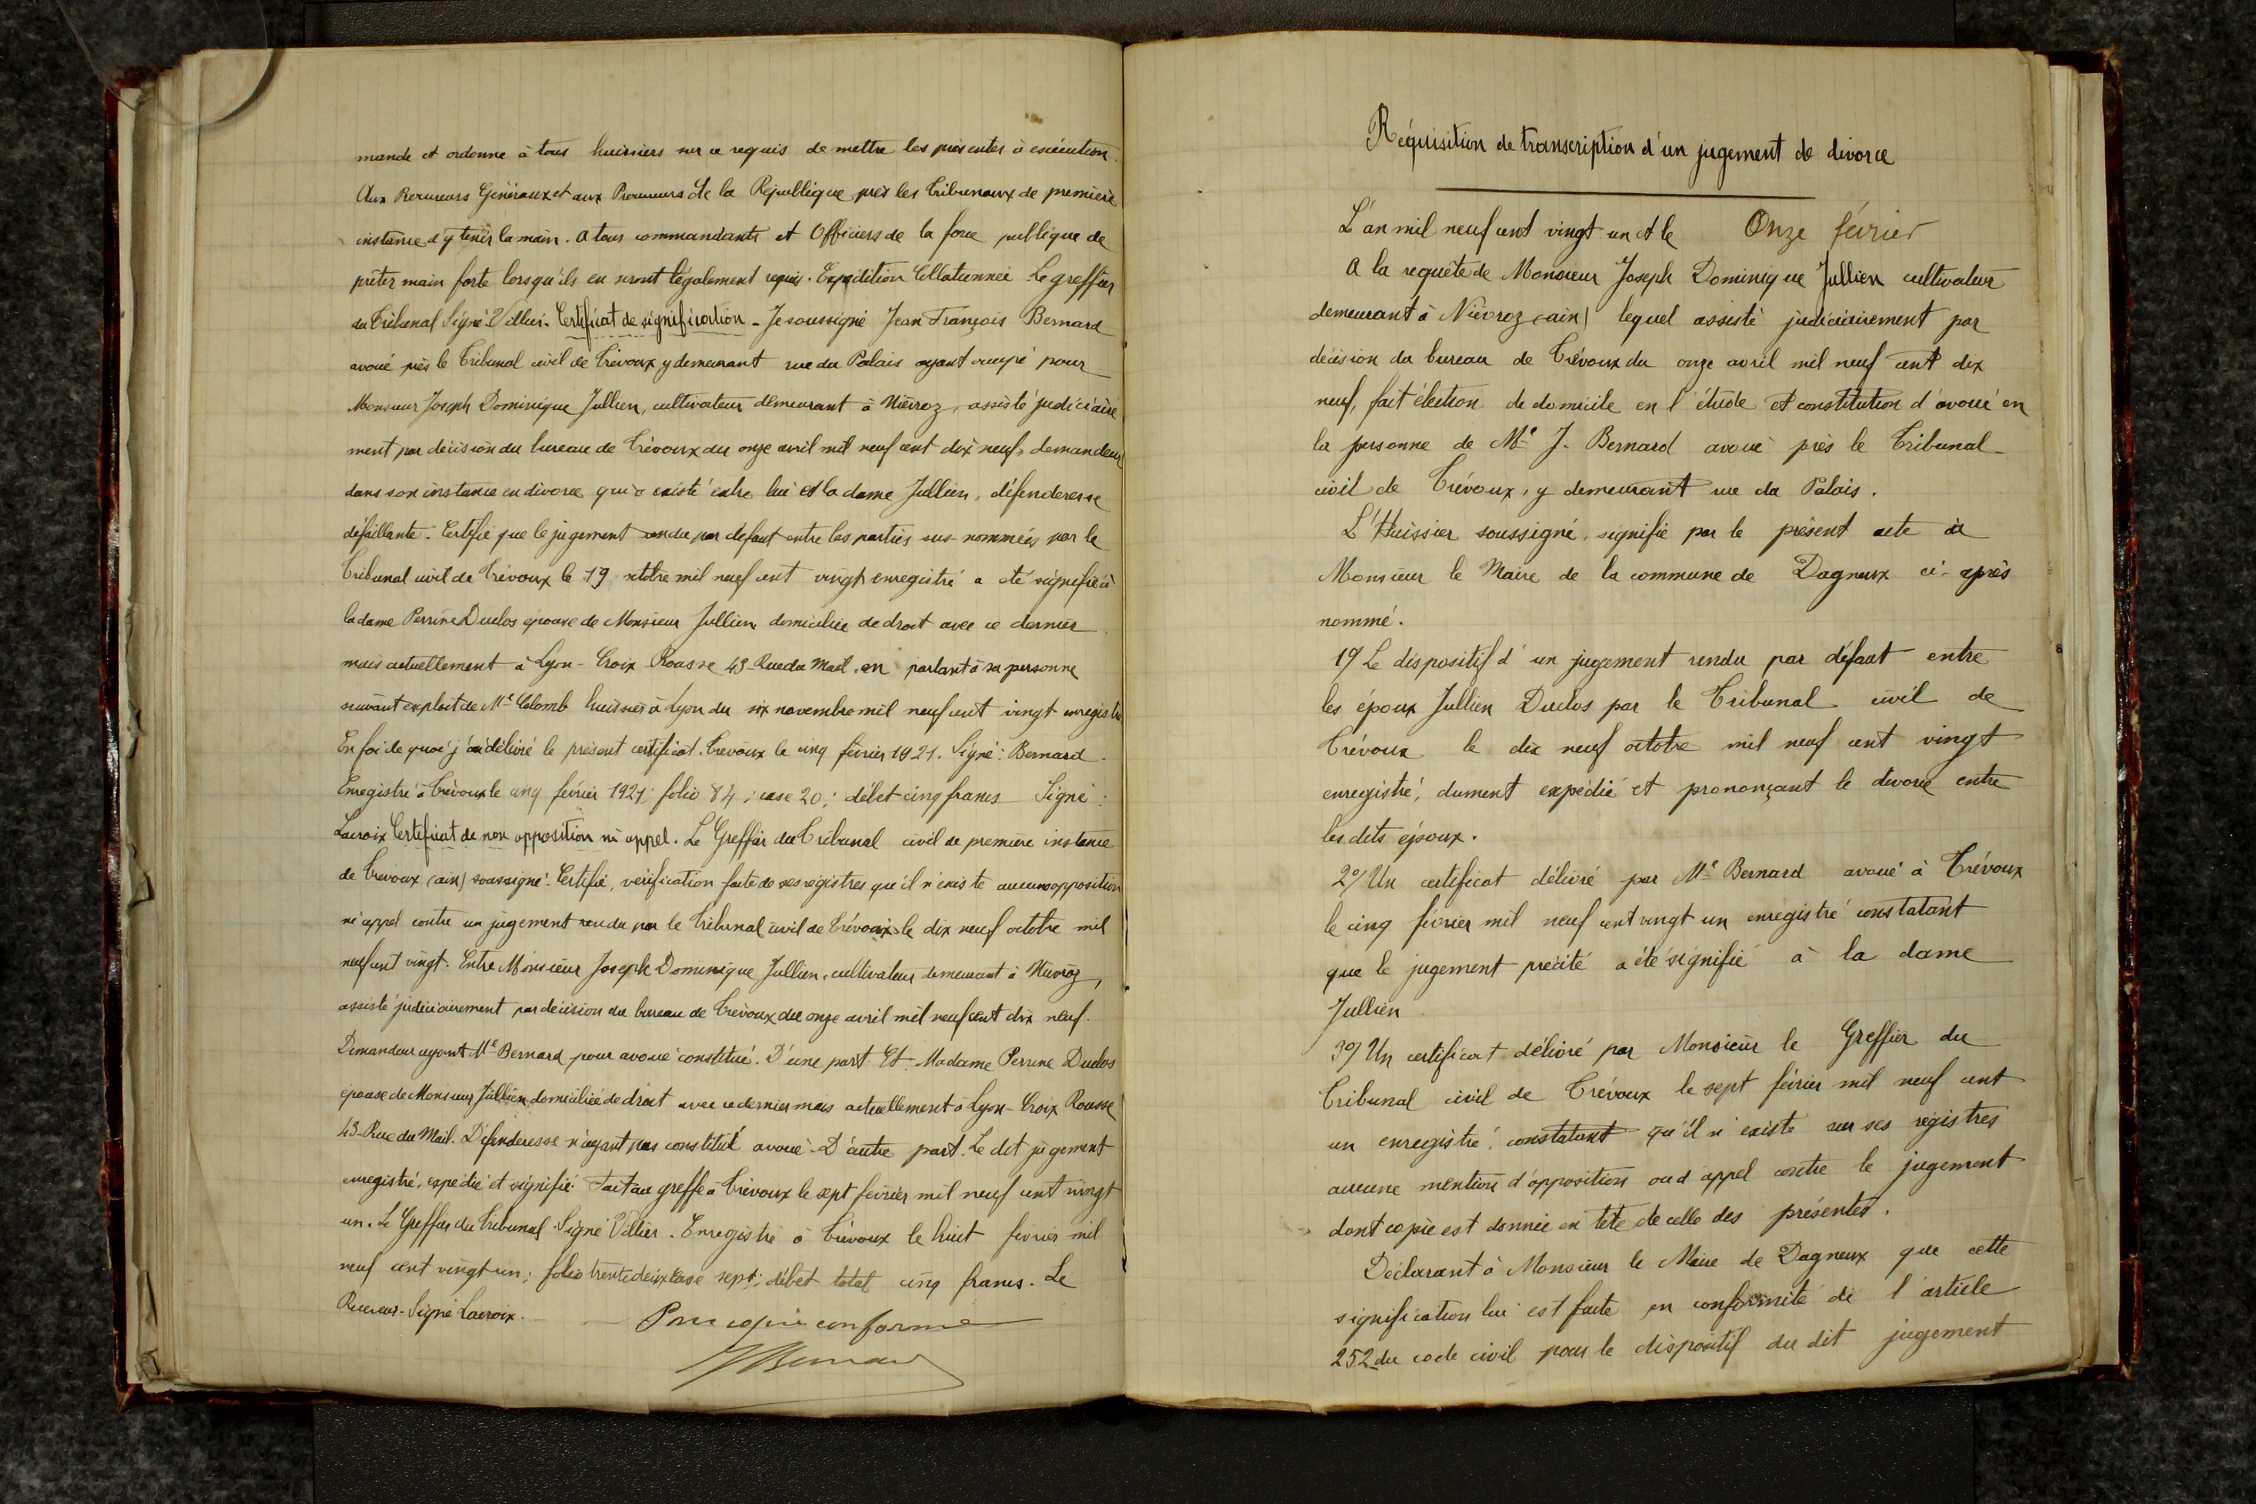 mande et ordonne à tous huissiers sur ce requis de mettre les présentes à exécution.
Aux Procureurs Généraux et aux Procureurs de la République près les Tribunaux de première
instance d'y tenir la main. A tous commandants et Officiers de la force publique de
prêter main forte lorsqu'ils en seront légalement requis. Expédition Collationnée Le greffier
du Tribunal Signé: Villier. Certificat de signification - Je soussigné Jean François Bernard
avoué près le Tribunal civil de Trévoux y demeurant rue du Palais ayant occupé pour
Monsieur Joseph Dominique Jullien, cultivateur demeurant à Niévroz, assisté judiciaire
ment par décision du bureau de Trévoux du onze avril mil neuf cent dix neuf, demandeur
dans son instance en divorce qui a existé entre lui et la dame Jullien, défenderesse
défaillante. Certifie que le jugement rendu par défaut entre les parties sus-nommées par le
Tribunal civil de Trévoux le 19 octobre mil neuf cent vingt enregistré a été signifié à
la dame Perrine Duclos épouse de Monsieur Jullien domiciliée de droit avec ce dernier
mais actuellement à Lyon-Croix Rousse 43 Rue du Mail, en parlant à sa personne
suivant exploit de Me Colomb huissier à Lyon du six novembre mil neuf cent vingt enregistré
En foi de quoi j'ai délivré le présent certificat. Trévoux le cinq février 1921. Signé: Bernard.
Enregistré à Trévoux le cinq février 1921; folio 84; case 20; débet cinq francs Signé:
Lacroix Certificat de non opposition ni appel. Le Greffier du Tribunal civil de première instance
de Trévoux (ain) soussigné. Certifie, vérification faite de ses registres qu'il n'existe aucune opposition
ni appel contre un jugement rendu par le Tribunal civil de Trévoux le dix neuf octobre mil
neuf cent vingt. Entre Monsieur Joseph Dominique Jullien, cultivateur demeurant à Niévroz,
assisté judiciairement par décision du bureau de Trévoux du onze avril mil neuf cent dix neuf.
Demandeur ayant Me Bernard pour avoué constitué. D'une part Et. Madame Perrine Duclos
épouse de Monsieur Jullien domiciliée de droit avec ce dernier mais actuellement à Lyon-Croix Rousse
43-Rue du Mail. Défenderesse n'ayant pas constitué avoué. D'autre part. Le dit jugement
enregistré, expédié et signifié. Fait au greffe à Trévoux le sept février mil neuf cent vingt
un. Le Greffier du Tribunal. Signé Villier. Enregistré à Trévoux le huit février mil
neuf cent vingt un; folio trente deux case sept; débet total cinq francs. Le
Receveur. Signé Lacroix.
Pour copie conforme
J Bernard
Réquisition de transcription d'un jugement de divorce
L'an mil neuf cent vingt un et le Onze février
A la requête de Monsieur Joseph Dominique Jullien cultivateur
demeurant à Niévroz (ain) lequel assisté judiciairement par
décision du bureau de Trévoux du onze avril mil neuf cent dix
neuf, fait élection de domicile en l'étude et constitution d'avoué en
la personne de Me J. Bernard avoué près le Tribunal
civil de Trévoux, y demeurant rue du Palais.
L'Huissier soussigné, signifie par le présent acte à
Monsieur le Maire de la commune de Dagneux ci-après
nommé.
1°/ Le dispositif d'un jugement rendu par défaut entre
les époux Jullien Duclos par le Tribunal civil de
Trévoux le dix neuf octobre mil neuf cent vingt
enregistré, dument expédié et prononçant le divorce entre
les dits époux.
2°/ Un certificat délivré par Me Bernard avoué à Trévoux
le cinq février mil neuf cent vingt un enregistré constatant
que le jugement précité a été signifié à la dame
Jullien
3°/ Un certificat délivré par Monsieur le Greffier du
Tribunal civil de Trévoux le sept février mil neuf cent
un enregistré, constatant qu'il n'existe sur ses registres
aucune mention d'opposition ou d'appel contre le jugement
dont copie est donnée en tête de celle des présentes.
Déclarant à Monsieur le Maire de Dagneux que cette
signification lui est faite en conformité de l'article
252 du code civil pour le dispositif du dit jugement